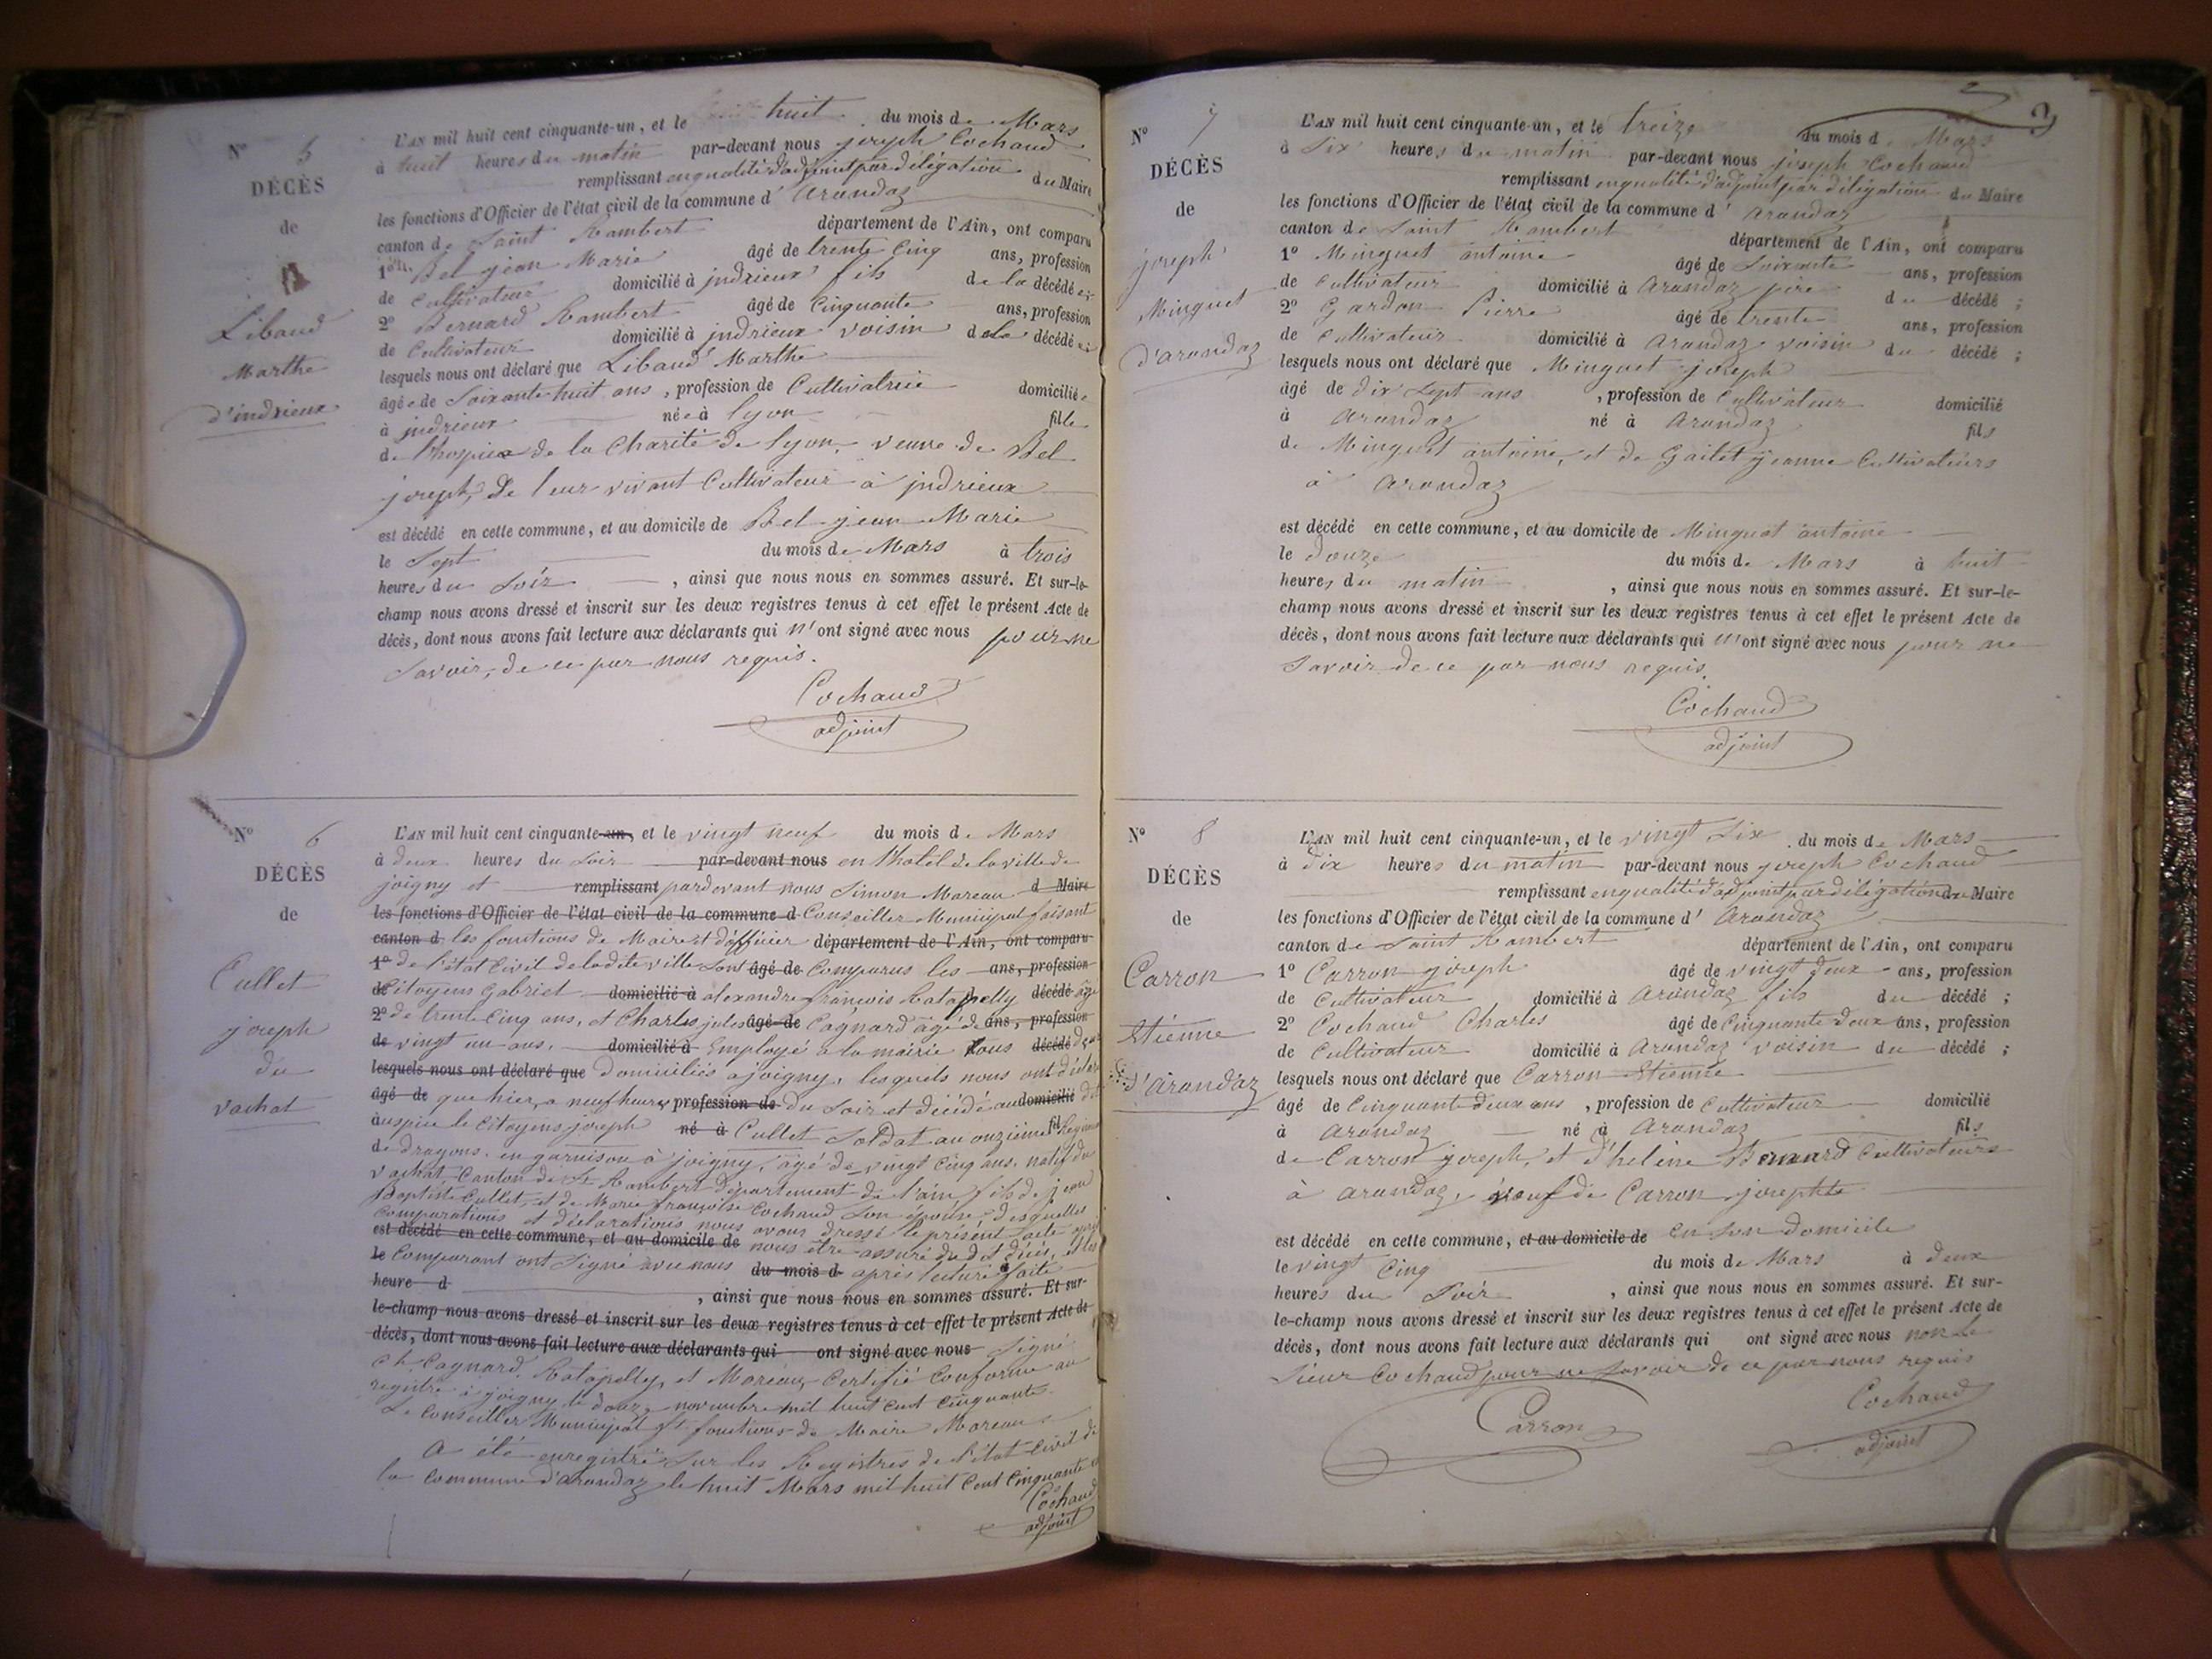 N° 5
DÉCÈS
de
Libaud
Marthe
d'indrieux
L'AN mil huit cent cinquante-un, et le huit du mois de Mars
à huit heures du matin par-devant nous joseph Cochaud
remplissant en qualité d'adjoint par délégation du Maire
les fonctions d'Officier de l'état civil de la commune d' Arandaz
canton de Saint Rambert département de l'Ain, ont comparu
1° Bel jean Marie âgé de trente Cinq ans, profession
de Cultivateur domicilié à jndrieux fils de la décédée
2° Bernard Rambert âgé de Cinquante ans, profession
de Cultivateur domicilié à jndrieux voisin de la décédée
lesquels nous ont déclaré que Libaud Marthe
âgée de Soixante huit ans, profession de Cultivatrice domiciliée
à jndrieux née à lyon fille
de l'hospice de la Charité de lyon, veuve de Bel
joseph, de leur vivant Cultivateur à jndrieux
est décédé en cette commune, et au domicile de Bel jean Marie
le Sept du mois de Mars à trois
heures du Soir, ainsi que nous nous en sommes assuré. Et sur-le-
champ nous avons dressé et inscrit sur les deux registres tenus à cet effet le présent Acte de
décès, dont nous avons fait lecture aux déclarants qui n'ont signé avec nous pour ne
Savoir, de ce par nous requis.
Cochaud
adjoint
N° 6
DÉCÈS
de
Cullet
joseph
du
vachat
L'AN mil huit cent cinquante-un, et le vingt neuf du mois de Mars
à deux heures du Soir par-devant nous en l'hotel de la ville de
joigny et remplissant pardevant nous Simon Moreau d Maire
les fonctions d'Officier de l'état civil de la commune d Conseiller Municipal faisant
canton d les fonctions de Maire et d'officier département de l'Ain, ont comparu
1° de l'état Civil de la dite ville Sont âgé de Comparus les ans, profession
de Citoyens Gabriel domicilié à alexandre françois Ratapelly décédé âgé
2° de trente Cinq ans, et Charles jules âgé de Cagnard âgé de ans, profession
de vingt un ans, domicilié à Employé à la mairie tous décédé
lesquels nous ont déclaré que Domiciliés a joigny, lesquels nous ont déclaré
âgé de que hier, a neuf heures profession de du Soir est décédé au domicilié
le Citoyens joseph né à Cullet Soldat au onzième fil Régiment
de dragons, en garnison à joigny, âgé de vingt Cinq ans, natif du
vachat, Canton de St Rambert département de l'ain, fils de jean
Baptiste Cullet, et de Marie françoise Cochaud Son épouse, desquelles
Comparutions et déclarations nous avons dressé le présent acte après
est décédé en cette commune, et au domicile de nous être assuré du dt décès, et les
le Comparant ont Signé avec nous du mois d après lecture faite
heure d, ainsi que nous nous en sommes assuré. Et sur-
le-champ nous avons dressé et inscrit sur les deux registres tenus à cet effet le présent Acte de
décès, dont nous avons fait lecture aux déclarants qui ont signé avec nous Signé
Ch. Cagnard, Ratapelly, et Moreau, Certifié Conforme au
registre à joigny le douze novembre mil huit cent cinquante.
Le Conseiller Municipal ft fonctions de Maire Moreau
A été enregistré Sur les Registres de l'état Civil de
la Commune d'Arandaz le huit Mars mil huit Cent Cinquante
Cochaud
adjoint
N° 7
DÉCÈS
de
joseph
Minguet
d'arandaz
L'AN mil huit cent cinquante-un, et le treize du mois d Mars
à Six heures du matin par-devant nous joseph Cochaud
remplissant en qualité d'adjoint par délégation du Maire
les fonctions d'Officier de l'état civil de la commune d' arandaz
canton de Saint Rambert département de l'Ain, ont comparu
1° Minguet antoine âgé de Soixante ans, profession
de Cultivateur domicilié à Arandaz père du décédé;
2° Gardon Pierre âgé de trente ans, profession
de Cultivateur domicilié à Arandaz voisin du décédé;
lesquels nous ont déclaré que Minguet joseph
âgé de dix Sept ans, profession de Cultivateur domicilié
à arandaz né à Arandaz fils
de Minguet antoine, et de Gaitet jeanne Cultivateurs
à arandaz
est décédé en cette commune, et au domicile de Minguet antoine
le douze du mois de Mars à huit
heures du matin, ainsi que nous nous en sommes assuré. Et sur-le-
champ nous avons dressé et inscrit sur les deux registres tenus à cet effet le présent Acte de
décès, dont nous avons fait lecture aux déclarants qui n'ont signé avec nous pour ne
Savoir de ce par nous requis.
Cochaud
adjoint
N° 8
DÉCÈS
de
Carron
Etienne
d'arandaz
L'AN mil huit cent cinquante-un, et le vingt Six du mois de Mars
à dix heures du matin par-devant nous joseph Cochaud
remplissant en qualité d'adjoint par délégation du Maire
les fonctions d'Officier de l'état civil de la commune d' Arandaz
canton de Saint Rambert département de l'Ain, ont comparu
1° Carron joseph âgé de vingt deux ans, profession
de Cultivateur domicilié à Arandaz fils du décédé;
2° Cochaud Charles âgé de Cinquante deux ans, profession
de Cultivateur domicilié à Arandaz voisin du décédé;
lesquels nous ont déclaré que Carron Etienne
âgé de Cinquante deux ans, profession de Cultivateur domicilié
à Arandaz né à Arandaz fils
de Carron joseph, et d'helène Bernard Cultivateurs
à arandaz, veuf de Carron josephte
est décédé en cette commune, et au domicile de en Son domicile
le vingt Cinq du mois de Mars à deux
heures du Soir, ainsi que nous nous en sommes assuré. Et sur-
le-champ nous avons dressé et inscrit sur les deux registres tenus à cet effet le présent Acte de
décès, dont nous avons fait lecture aux déclarants qui ont signé avec nous non le
Sieur Cochaud pour ne Savoir de ce par nous requis
Carron
Cochaud
adjoint